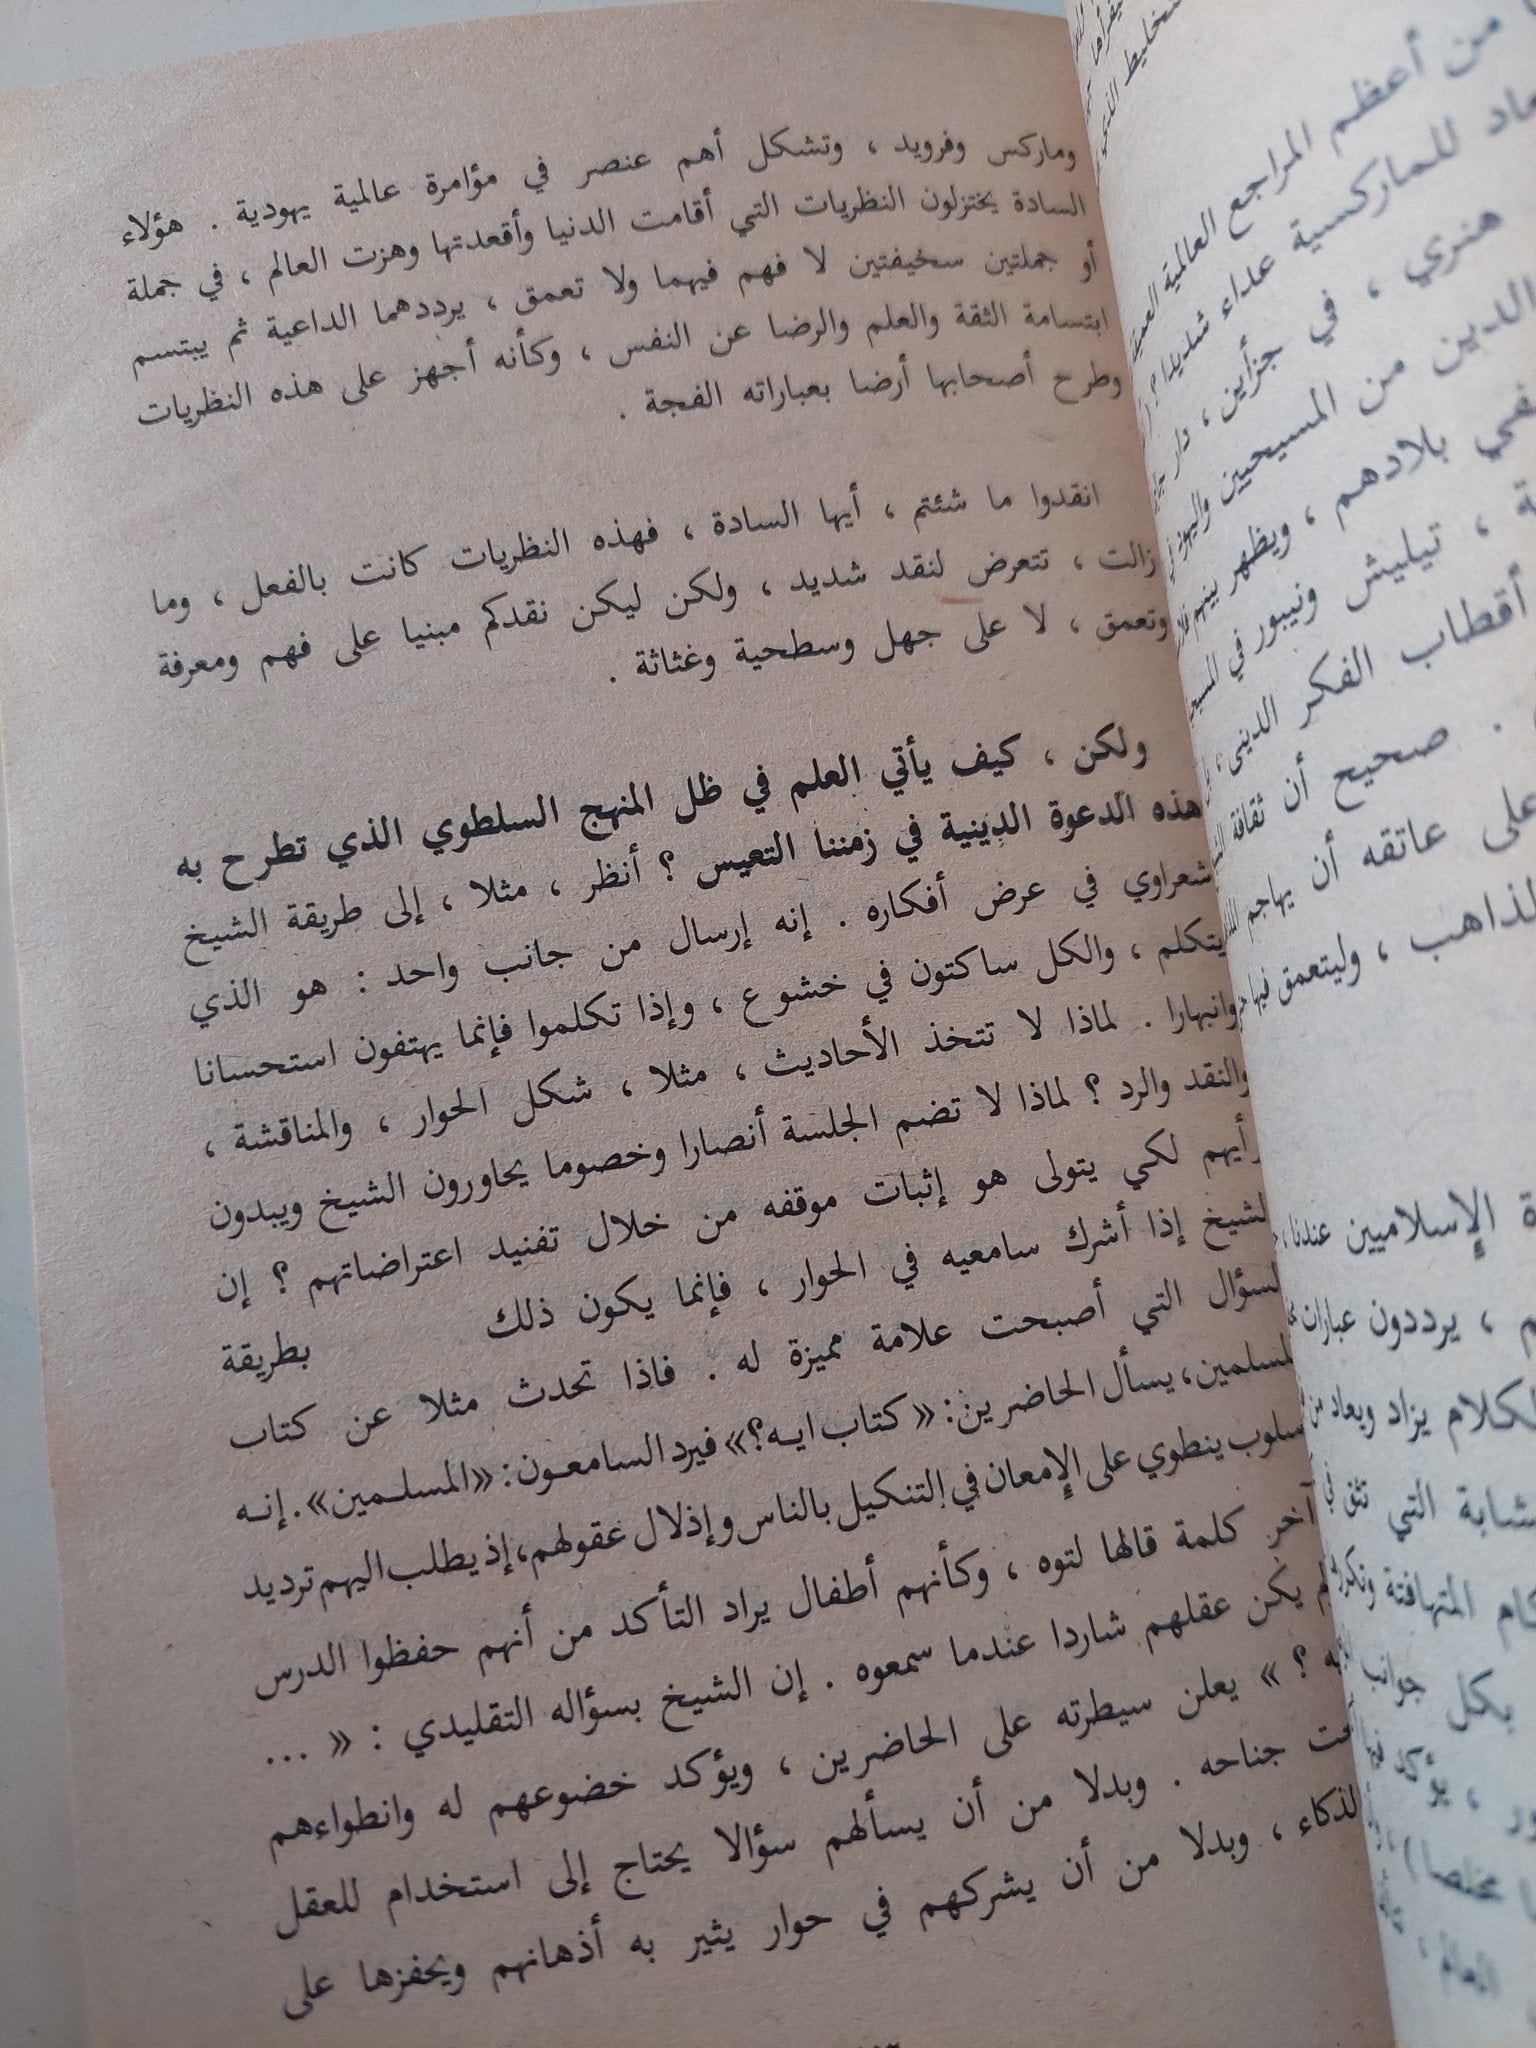 وماركس وفرويد ، وتشكل أهم عنصر في مؤامرة عالمية يهودية . هؤلاء
السادة يختزلون النظريات التي أقامت الدنيا وأقعدتها وهزت العالم ، في جملة
أو جملتين سخيفتين لا فهم فيهما ولا تعمق ، يرددهما الداعية ثم يبتسم
ابتسامة الثقة والعلم والرضا عن النفس ، وكأنه أجهز على هذه النظريات
وطرح أصحابها أرضا بعباراته الفجة .
انقدوا ما شئتم ، أيها السادة ، فهذه النظريات كانت بالفعل ، وما
زالت ، تتعرض لنقد شديد ، ولكن ليكن نقدكم مبنيا على فهم ومعرفة
وتعمق ، لا على جهل وسطحية وغثاثة .
ولكن ، كيف يأتي العلم في ظل المنهج السلطوي الذي تطرح به
هذه الدعوة الدينية في زمننا التعيس ؟ أنظر ، مثلا ، إلى طريقة الشيخ
شعراوي في عرض أفكاره . إنه إرسال من جانب واحد : هو الذي
يتكلم ، والكل ساكتون في خشوع ، وإذا تكلموا فإنما يهتفون استحسانا
وانبهارا . لماذا لا تتخذ الأحاديث ، مثلا ، شكل الحوار ، والمناقشة ،
والنقد والرد ؟ لماذا لا تضم الجلسة أنصارا وخصوما يحاورون الشيخ ويبدون
رأيهم لكي يتولى هو إثبات موقفه من خلال تفنيد اعتراضاتهم ؟ إن
لشيخ إذا أشرك سامعيه في الحوار ، فإنما يكون ذلك بطريقة
لسؤال التي أصبحت علامة مميزة له . فاذا تحدث مثلا عن كتاب
لمسلمين، يسأل الحاضرين: « كتاب ايه؟» فيرد السامعون: «المسلمين». إنه
سلوب ينطوي على الإمعان في التنكيل بالناس وإذلال عقولهم، إذ يطلب اليهم ترديد
آخر كلمة قالها لتوه ، وكأنهم أطفال يراد التأكد من أنهم حفظوا الدرس
م يكن عقلهم شاردا عندما سمعوه . إن الشيخ بسؤاله التقليدي : « ...
يه ؟ » يعلن سيطرته على الحاضرين ، ويؤكد خضوعهم له وانطواءهم
حت جناحه . وبدلا من أن يسألهم سؤالا يحتاج إلى استخدام للعقل
لذكاء ، وبدلا من أن يشركهم في حوار يثير به أذهانهم ويحفزها على
من أعظم المراجع العالمية
للماركسية عداء شديدا ؟
هنري ، في جزأين ، دار
الدين من المسيحيين واليهود
بلادهم ، ويظهر بينهم
، تيليش ونيبور في
أقطاب الفكر الديني ،
. صحيح أن ثقافة
على عاتقه أن يهاجم
لذاهب ، وليتعمق فيها
الإسلاميين عندنا ،
، يرددون عبارات
لكلام يزاد ويعاد من
التي تثق في
المتهافتة
بكل جوانب
، يؤكد فيها